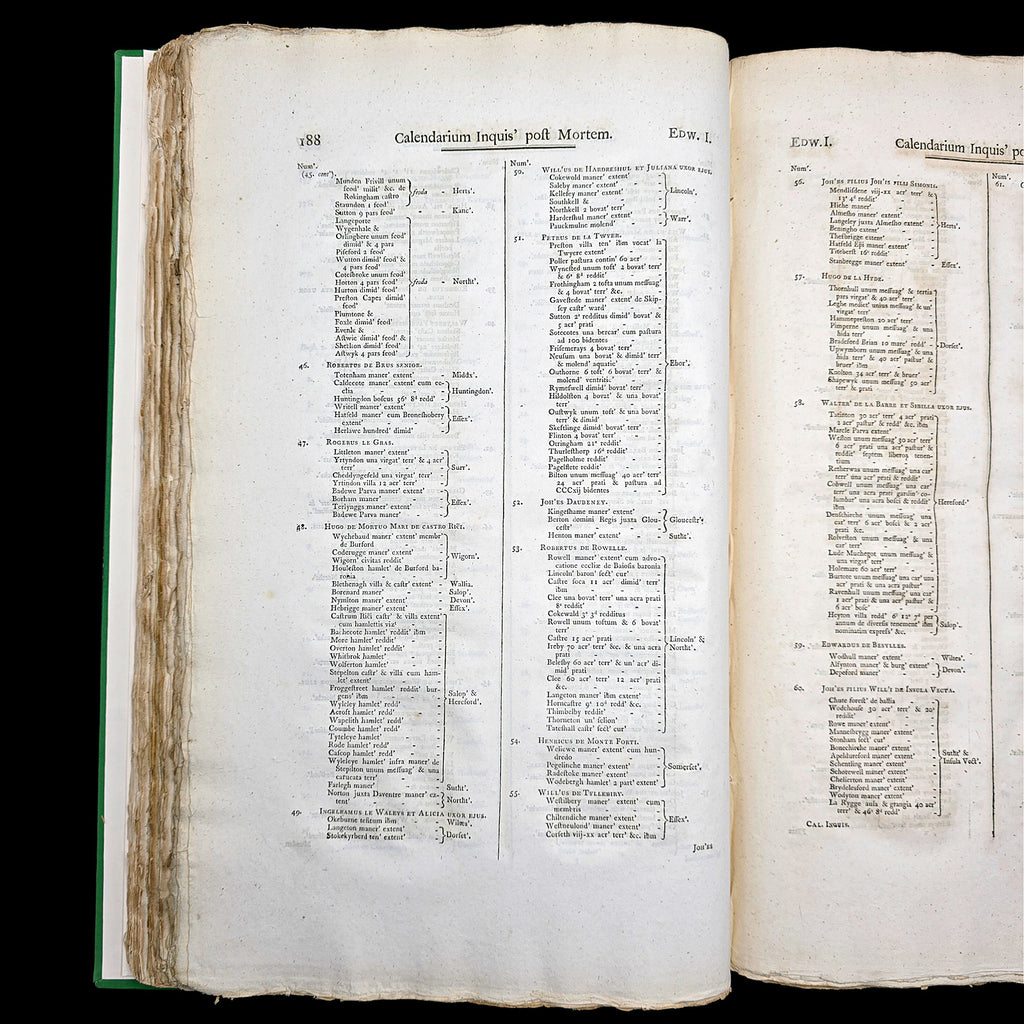 188
Calendarium Inquis' poſt Mortem.
Edw. I.
Num'.
(45. cont').
Munden Frivill unum
feod' milit' &c. de
Rokingham caſtro
feoda - Herts'.
Staundon 1 feod'
Sutton 9 pars feod' - - Kanc'.
Langeporte
Wygenhale &
Orlingbere unum feod'
dimid' & 4 pars
Pisford 2 feod'
Wutton dimid' feod' &
4 pars feod'
Coteſbroke unum feod'
Horton 4 pars feod'
feoda - Northt'.
Hurton dimid' feod'
Preſton Capes dimid'
feod'
Plumtone &
Foxle dimid' feod'
Evenle &
Aſtwic dimid' feod' &
Shelton dimid' feod'
Aſtwyk 4 pars feod'
46. Robertus de Brus senior.
Totenham maner' extent' - Middx'.
Caldecote maner' extent' cum ec-
cleſia
Huntingdon'.
Huntingdon boſcus 56s 8d redd'
Writell maner' extent'
Hatfeld maner' cum Bromeſhobery
extent'
Eſſex'.
Herlawe hundred' dimid'
47. Rogerus le Gras.
Littleton maner' extent'
Yrtyndon una virgat' terr' & 4 acr'
terr'
Surr'.
Cheddyngefeld una virgat' terr'
Yrtindon villa 12 acr' terr'
Badewe Parva maner' extent'
Borham maner'
Eſſex'.
Terlyngs maner' extent'
Badewe Parva maner'
48. Hugo de Mortuo Mari de castro Ric'i.
Wychebaud maner' extent' membr'
de Burford
Coderugge maner' extent'
Wigorn'.
Wigorn' civitas reddit'
Houleſton hamlet' de Burford ba-
ronia
Blethenagh villa & caſtr' extent' - Wallia.
Borenard maner' - Salop'.
Nymiton maner' extent' - Devon'.
Hebrigge maner' extent' - Eſſex'.
Caſtrum Ric'i caſtr' & villa extent'
cum hamlettis viz'
Bacherote hamlet' reddit' ibm
More hamlet' reddit'
Overton hamlet' reddit'
Whitbrok hamlet'
Wolferton hamlet'
Stepelton caſtr' & villa cum ham-
let' extent'
Froggeſtreet hamlet' reddit' bur-
gens' ibm
Salop' &
Hereford'.
Wyleley hamlet' redd'
Acroft hamlet' redd'
Wapelith hamlet' redd'
Coumbe hamlet' redd'
Tyteleye hamlet'
Rode hamlet' redd'
Caſcop hamlet' redd'
Wyleleye hamlet' infra maner' de
Stepilton unum meſſuag' & una
carucata terr'
Farlegh maner' - Sutht'.
Norton juxta Daventre maner' ex-
tent' - Northt'.
49. Ingelramus le Waleys et Alicia uxor ejus.
Okeburne teſtum ibm - Wiltes'.
Langeton maner' extent'
Dorſet'.
Stokekyrberd ten' extent'
Num'.
50. Will'us de Hardreshul et Juliana uxor ejus.
Cokewold maner' extent'
Saleby maner' extent'
Kelleſey maner' extent'
Lincoln'.
Southkell &
Northkell 2 bovat' terr'
Harderſhul maner' extent'
Warr'.
Pauckmulne molend'
51. Petrus de la Twyer.
Preſton villa ten' ibm vocat' la
Twyere extent'
Poller paſtura contin' 60 acr'
Wyneſted unum toft' 2 bovat' terr'
& 6s 8d reddit'
Frothingham 2 tofta unum meſſuag'
& 4 bovat' terr' &c.
Gaveſtede maner' extent' de Skip-
ſey caſtr' ward'
Sutton 2s redditus dimid' bovat' &
5 acr' prati
Sotecotes una bercar' cum paſtura
ad 100 bidentes
Friſemerays 4 bovat' terr'
Neuſum una bovat' & dimid' terr'
& molend' aquatic'
Ebor'.
Outhorne 6 toft' 6 bovat' terr' &
molend' ventritic.'
Rymeſwell dimid' bovat' terr'
Hildolſton 4 bovat' & una bovat'
terr'
Ouſtwyk unum toft' & una bovat'
terr' & dimid'
Skeftlinge dimid' bovat' terr'
Flinton 4 bovat' terr'
Otringham 21s reddit'
Thurleſthorp 16d reddit'
Pagelholme reddit'
Pagelflete reddit'
Bilton unum meſſuag' 40 acr' terr'
24 acr' prati & paſtura ad
CCCxij bidentes
52. Joh'es Daubeney.
Kingeſhame maner' extent'
Berton domini Regis juxta Glou-
ceſtr'
Glouceſtr'.
Henton maner' extent' - Sutht'.
53. Robertus de Rowelle.
Rowell maner' extent' cum advo-
catione eccliæ de Baioſis baronia
Lincoln' baron' ſect' cur'
Caſtre ſoca 11 acr' dimid' terr'
ibm
Clee una bovat' terr' una acra prati
8d reddit'
Cokewald 3s 3d redditus
Rowell unum toftum & 6 bovat'
terr'
Caſtre 15 acr' prati
Ireby 70 acr' terr' &c. & una acra
prati
Lincoln' &
Northt'.
Beleſby 60 acr' terr' & un' acr' di-
mid' prati
Clee 60 acr' terr' 12 acr' prati
&c.
Langeton maner' ibm extent'
Horncaſtre 9s 10d redd' &c.
Thimbelby reddit'
Thorneton un' ſelion'
Tateſhall caſtr' ſect' cur'
54. Henricus de Monte Forti.
Weliewe maner' extent' cum hun-
dredo
Pegelinche maner' extent'
Somerſet'.
Radeſtoke maner' extent'
Wodebergh hamlet' 2 part' extent'
55. Will'us de Tyllebiry.
Weſtilbery maner' extent' cum
membris
Chiltendiche maner' extent'
Eſſex'.
Weſtneulond' maner' extent'
Corſeth viij-xx acr' terr' &c. ibm
Joh'es
Edw. I.
Calendarium Inquis' po
Num'.
56. Joh'es filius Joh'is filii Simonis.
Mendliſdene viij-xx acr' terr' &
13s 4d reddit'
Hiche maner'
Almeſho maner' extent'
Langeley juxta Almeſho extent'
Herts'.
Beningho extent'
Theſbrigge extent'
Hatfeld Ep'i maner' extent'
Titeberſt 16d reddit'
Stanbregge maner' extent' - Eſſex'.
57. Hugo de la Hyde.
Thornhull unum meſſuag' & tertia
pars virgat' & 40 acr' terr'
Leghe mediet' unius meſſuag' & un'
virgat' terr'
Hammepreſton 20 acr' terr'
Pimperne unum meſſuag' & una
hida terr'
Bradeford Brian 10 marc' redd'
Dorſet'.
Upwymborn unum meſſuag' & una
hida terr' & 40 acr' paſtur' &
bruer' ibm
Knolton 34 acr' terr' & bruer'
Shapewyk unum meſſuag' 50 acr'
terr' & prati
58. Walter' de la Barre et Sibilla uxor ejus.
Tatinton 30 acr' terr' 4 acr' prati
2 acr' paſtur' & redd' &c. ibm
Marcle Parva extent'
Weſton unum meſſuag' 30 acr' terr'
6 acr' prati una acr' paſtur' &
reddit' ſeptem liberor' tenen-
tium
Retherwas unum meſſuag' una car'
terr' una acr' prati & reddit'
Cobwell unum meſſuag' una car'
terr' una acra prati gardin' co-
lumbar' una acra boſci & reddit'
ibm
Hereford'.
Denſchirche unum meſſuag' una
car' terr' 6 acr' boſci & 2 acr'
prati &c.
Rolveſton unum meſſuag' & una
car' terr'
Lude Muchegot unum meſſuag' &
una virgat' terr'
Holemare 60 acr' terr'
Burtote unum meſſuag' una car' una
acr' prati & una acr' paſtur'
Ravenhull unum meſſuag' una car'
1 acr' prati & una acr' paſtur' &
6 acr' boſc'
Heyton villa redd' 6s 12d per
annum de diverſis tenement' ibm
Salop'.
nominatim expreſs' &c.
59. Edwardus de Bestlles.
Wodhull maner' extent' - Wiltes'.
Alfynton maner' & burg' extent'
Devon'.
Depeford maner'
60. Joh'es filius Will'i de Insula Vecta.
Chute foreſt' de ballia
Wodehouſe 30 acr' terr' & 20s
reddit'
Rowe maner' extent'
Manneſbrygg maner' extent'
Stonham ſect' cur'
Bonechirche maner' extent'
Apeldureford maner' extent'
Sutht' &
Inſula Vect'.
Schentling maner' extent'
Schorewell maner' extent'
Cheſierton maner' extent'
Brydeleſford maner' extent'
Wodyton maner' extent'
La Rygge aula & grangia 40 acr'
terr' & 46s 8d redd'
Cal. Inquis.
Num'.
61.